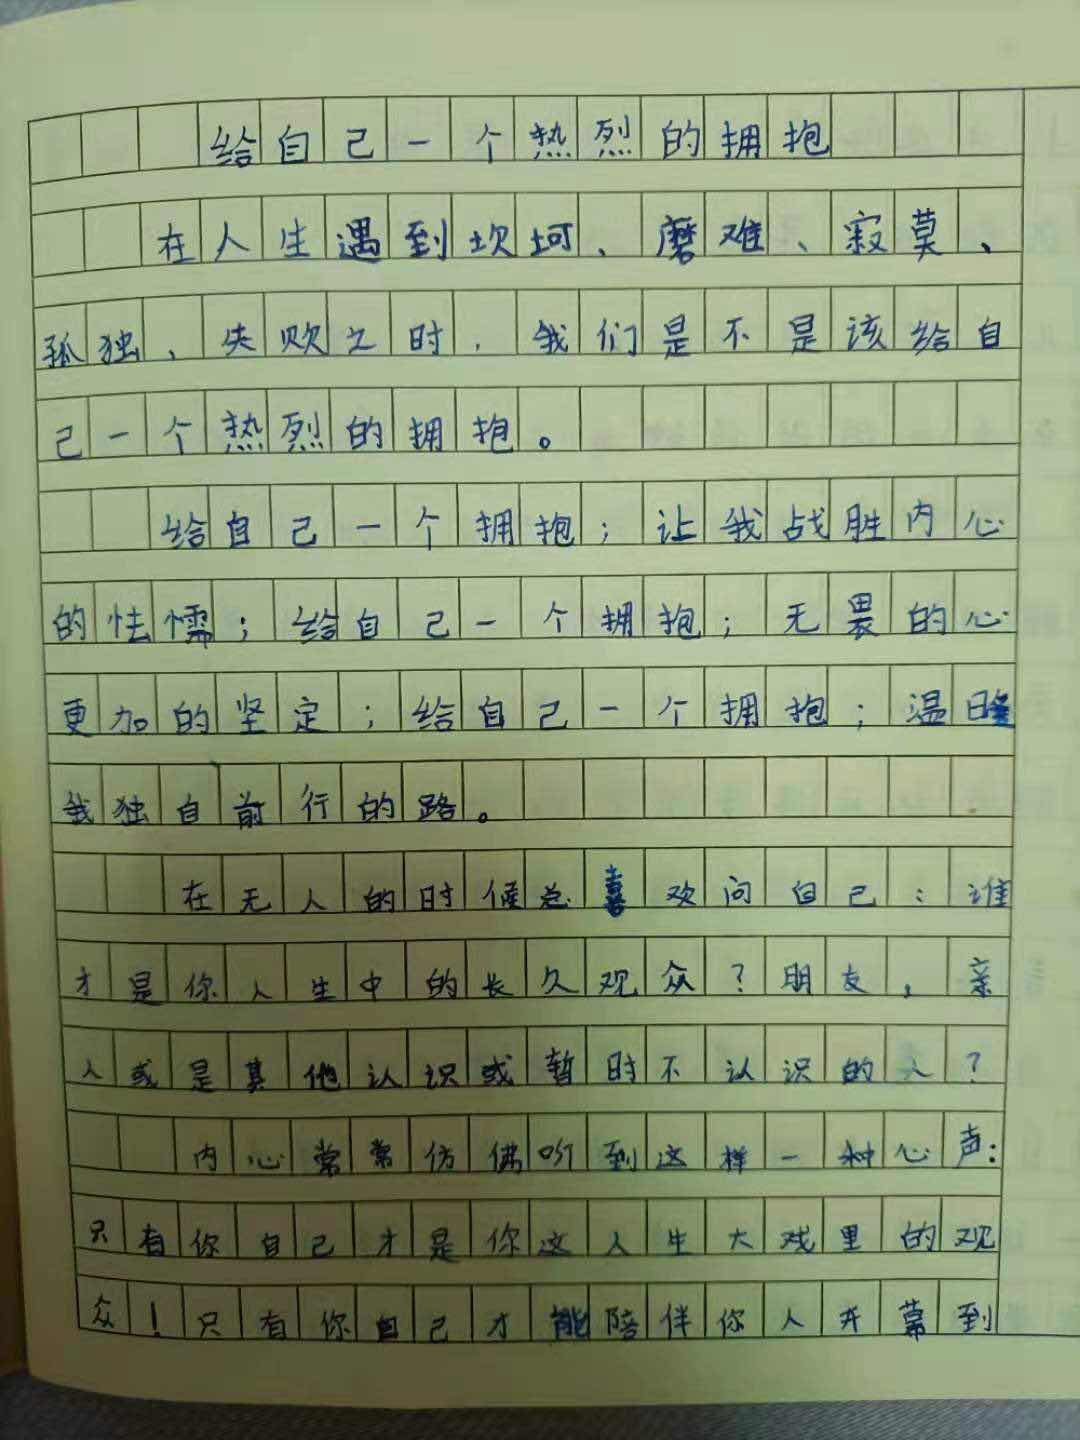 给自己一个热烈的拥抱
在人生遇到坎坷、磨难、寂莫、
孤独，失败之时，我们是不是该给自
己一个热烈的拥抱。
给自己一个拥抱；让我战胜内心
的怯懦；给自己一个拥抱；无畏的心
更加的坚定；给自己一个拥抱；温暖
我独自前行的路。
在无人的时候总喜欢问自己：谁
才是你人生中的长久观众？朋友，亲
人或是其他认识或暂时不认识的人？
内心常常仿佛听到这样一种心声：
只有你自己才是你这人生大戏里的观
众！只有你自己才能陪伴你人开幕到